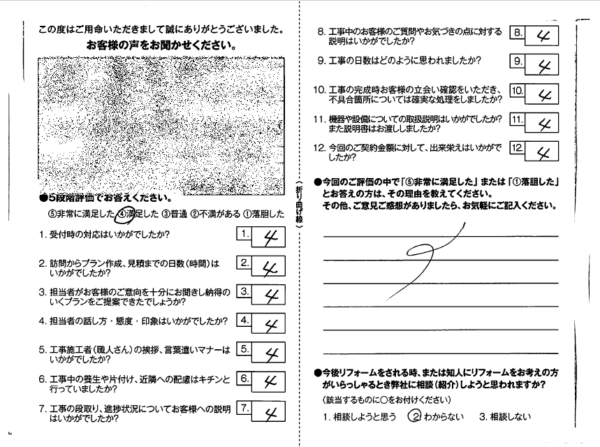 この度はご用命いただきまして誠にありがとうございました。
お客様の声をお聞かせください。
●5段階評価でお答えください。
⑤非常に満足した ④満足した ③普通 ②不満がある ①落胆した
1. 受付時の対応はいかがでしたか?
1. 4
2. 訪問からプラン作成、見積までの日数(時間)は
いかがでしたか?
2. 4
3. 担当者がお客様のご意向を十分にお聞きし納得の
いくプランをご提案できたでしょうか?
3. 4
4. 担当者の話し方・態度・印象はいかがでしたか?
4. 4
5. 工事施工者(職人さん)の挨拶、言葉遣いマナーは
いかがでしたか?
5. 4
6. 工事中の養生や片付け、近隣への配慮はキチンと
行っていましたか?
6. 4
7. 工事の段取り、進捗状況についてお客様への説明
はいかがでしたか?
7. 4
(折り曲げ線)
8. 工事中のお客様のご質問やお気づきの点に対する
説明はいかがでしたか?
8. 4
9. 工事の日数はどのように思われましたか?
9. 4
10. 工事の完成時お客様の立会い確認をいただき、
不具合箇所については確実な処理をしましたか?
10. 4
11. 機器や設備についての取扱説明はいかがでしたか?
また説明書はお渡ししましたか?
11. 4
12. 今回のご契約金額に対して、出来栄えはいかがで
したか?
12. 4
●今回のご評価の中で「⑤非常に満足した」または「①落胆した」
とお答えの方は、その理由を教えてください。
その他、ご意見ご感想がありましたら、お気軽にご記入ください。
●今後リフォームをされる時、または知人にリフォームをお考えの方
がいらっしゃるとき弊社に相談(紹介)しようと思われますか?
(該当するものに○をお付けください)
1. 相談しようと思う ②わからない 3. 相談しない